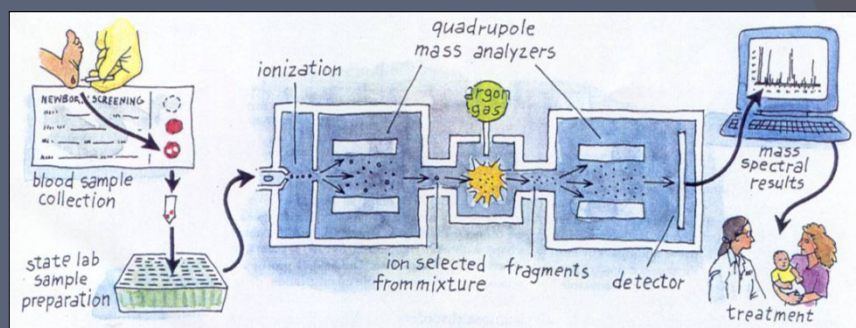 NEWBORN SCREENING
blood sample
collection
state lab
sample
preparation
ionization
quadrupole
mass analyzers
argon
gas
ion selected
from mixture
fragments
detector
mass
spectral
results
treatment